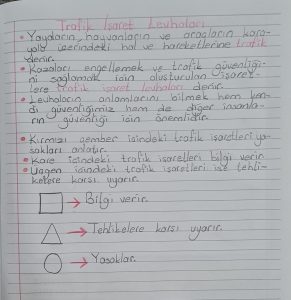 Trafik İşaret Levhaları
• Yayaların, hayvanların ve araçların kara-
yolu üzerindeki hal ve hareketlerine trafik
denir.
• Kazaları engellemek ve trafik güvenliği-
ni sağlamak için oluşturulan işaret-
lere trafik işaret levhaları denir.
• Levhaların anlamlarını bilmek hem ken-
di güvenliğimiz hem de diğer insanla-
rın güvenliği için önemlidir.
• Kırmızı çember içindeki trafik işaretleri ya-
sakları anlatır.
• Kare içindeki trafik işaretleri bilgi verir.
• Üçgen içindeki trafik işaretleri ise tehli-
kelere karşı uyarır.
→ Bilgi verir.
→ Tehlikelere karşı uyarır.
→ Yasaklar.